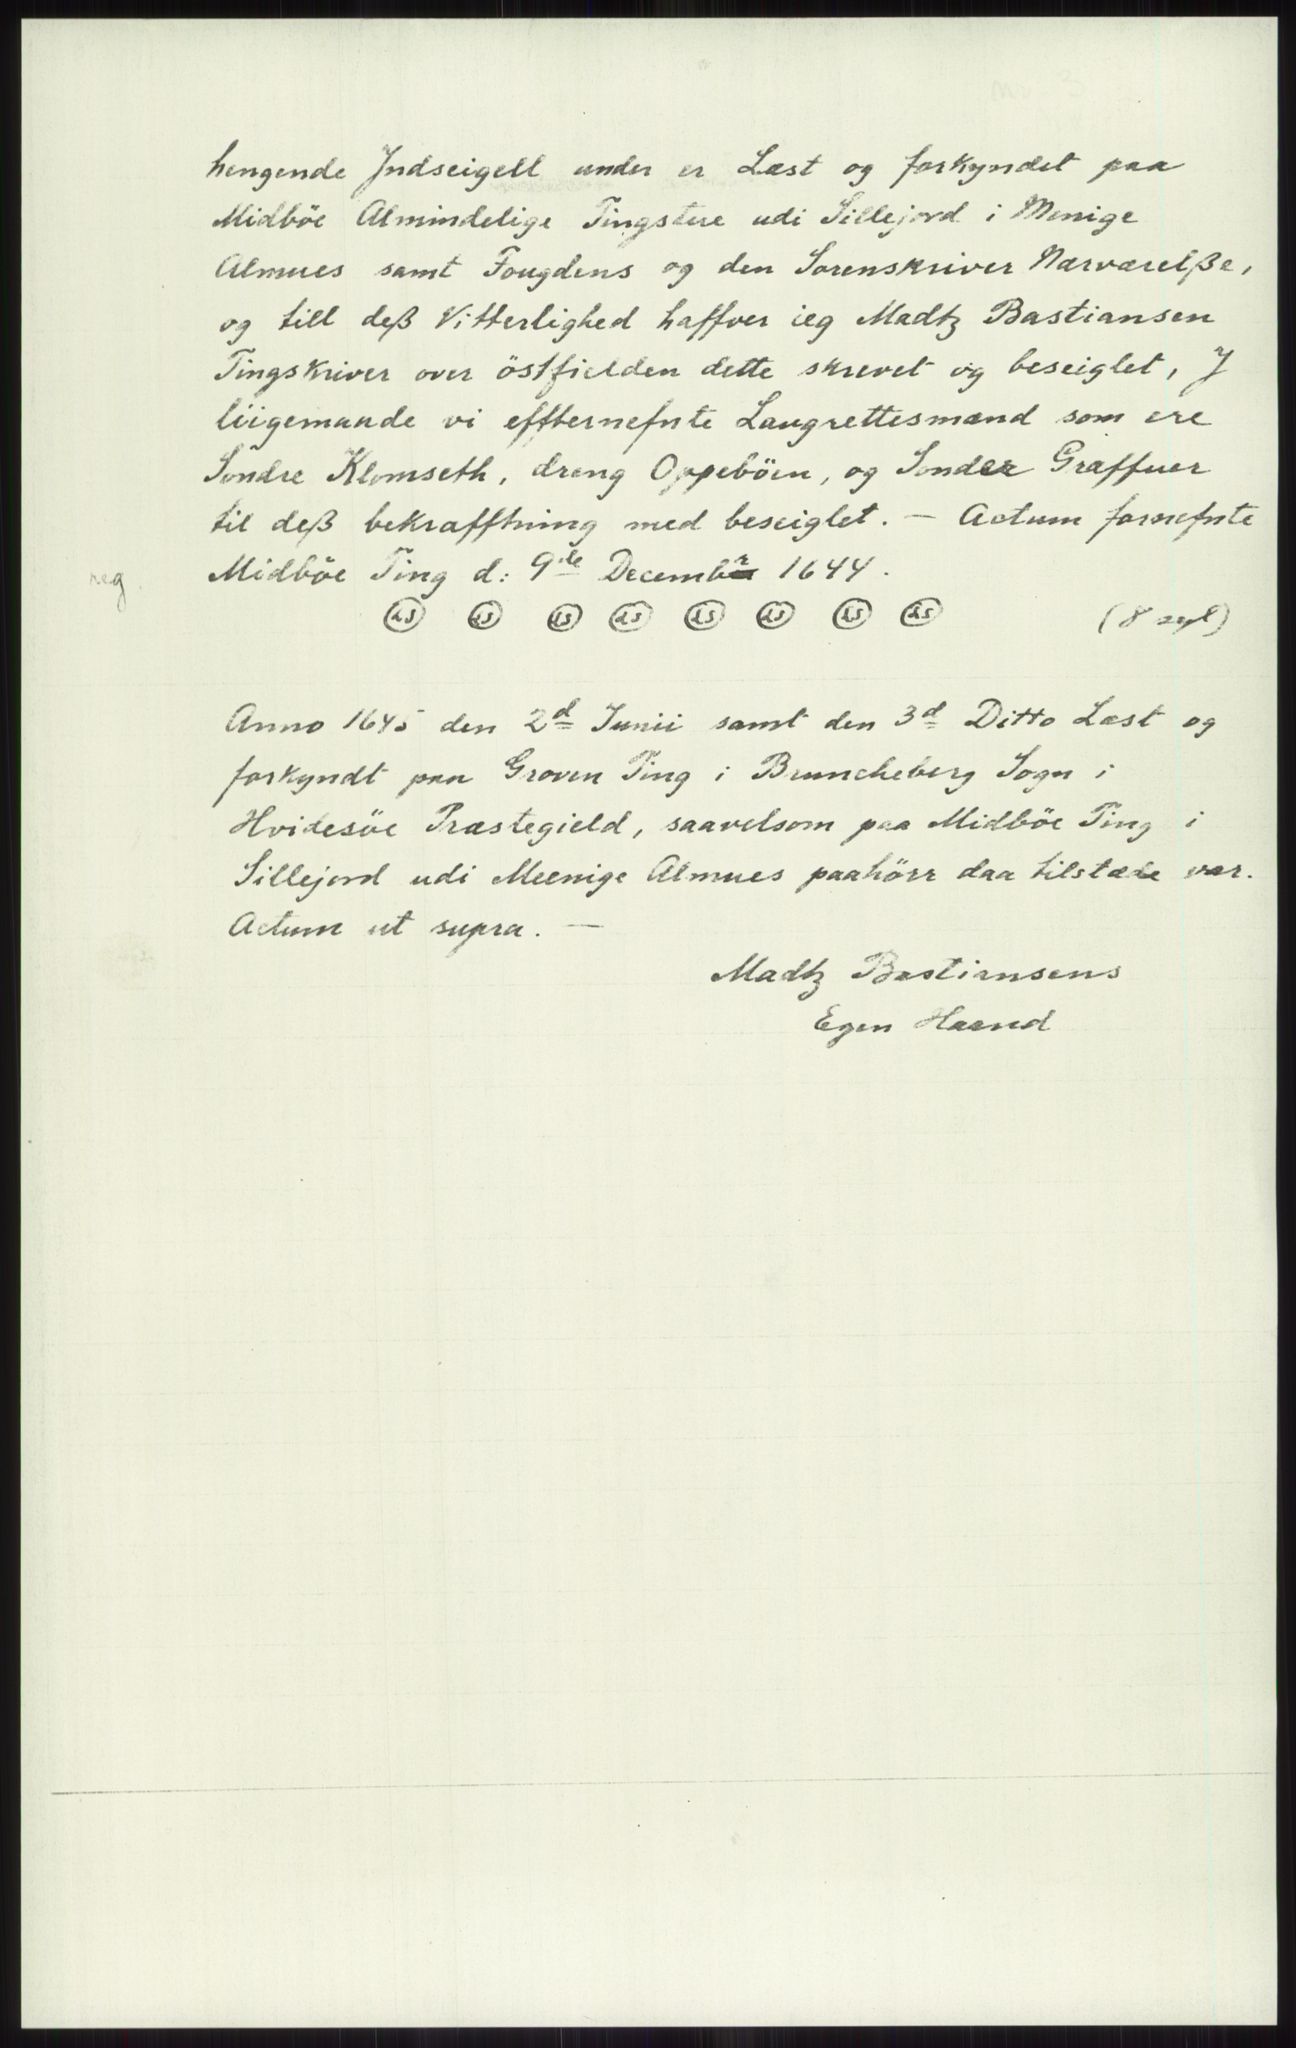 hengende Jndseigell under er Læst og forkyndet paa
Midböe Almindelige Tingstere udi Sillejord i Menige
Almues samt Fougdens og den Sorenskriver Nærværelße,
og till deß Vitterlighed haffver ieg Madtz Bastiansen
Tingskriver over östfielden dette skrevet og beseiglet, J
liigemaade vi effternefnte Laugrettesmænd som ere
Sondre Klomseth, dreng Oppeböen, og Sonder Graffuer
til deß bekrafftning med beseiglet. — Actum fornefnte
reg Midböe Ting d: 9de Decembr 1644.
LS LS LS LS LS LS LS LS (8 segl)
Anno 1645 den 2d Junii samt den 3d Ditto Læst og
forkyndt paa Groven Ting i Bruncheberg Sogn i
Hvidesöe Præstegield, saavelsom paa Midböe Ting i
Sillejord udi Meenige Almues paahörr daa tilstæde var.
Actum ut supra. —
Madtz Bastiansens
Egen Haand